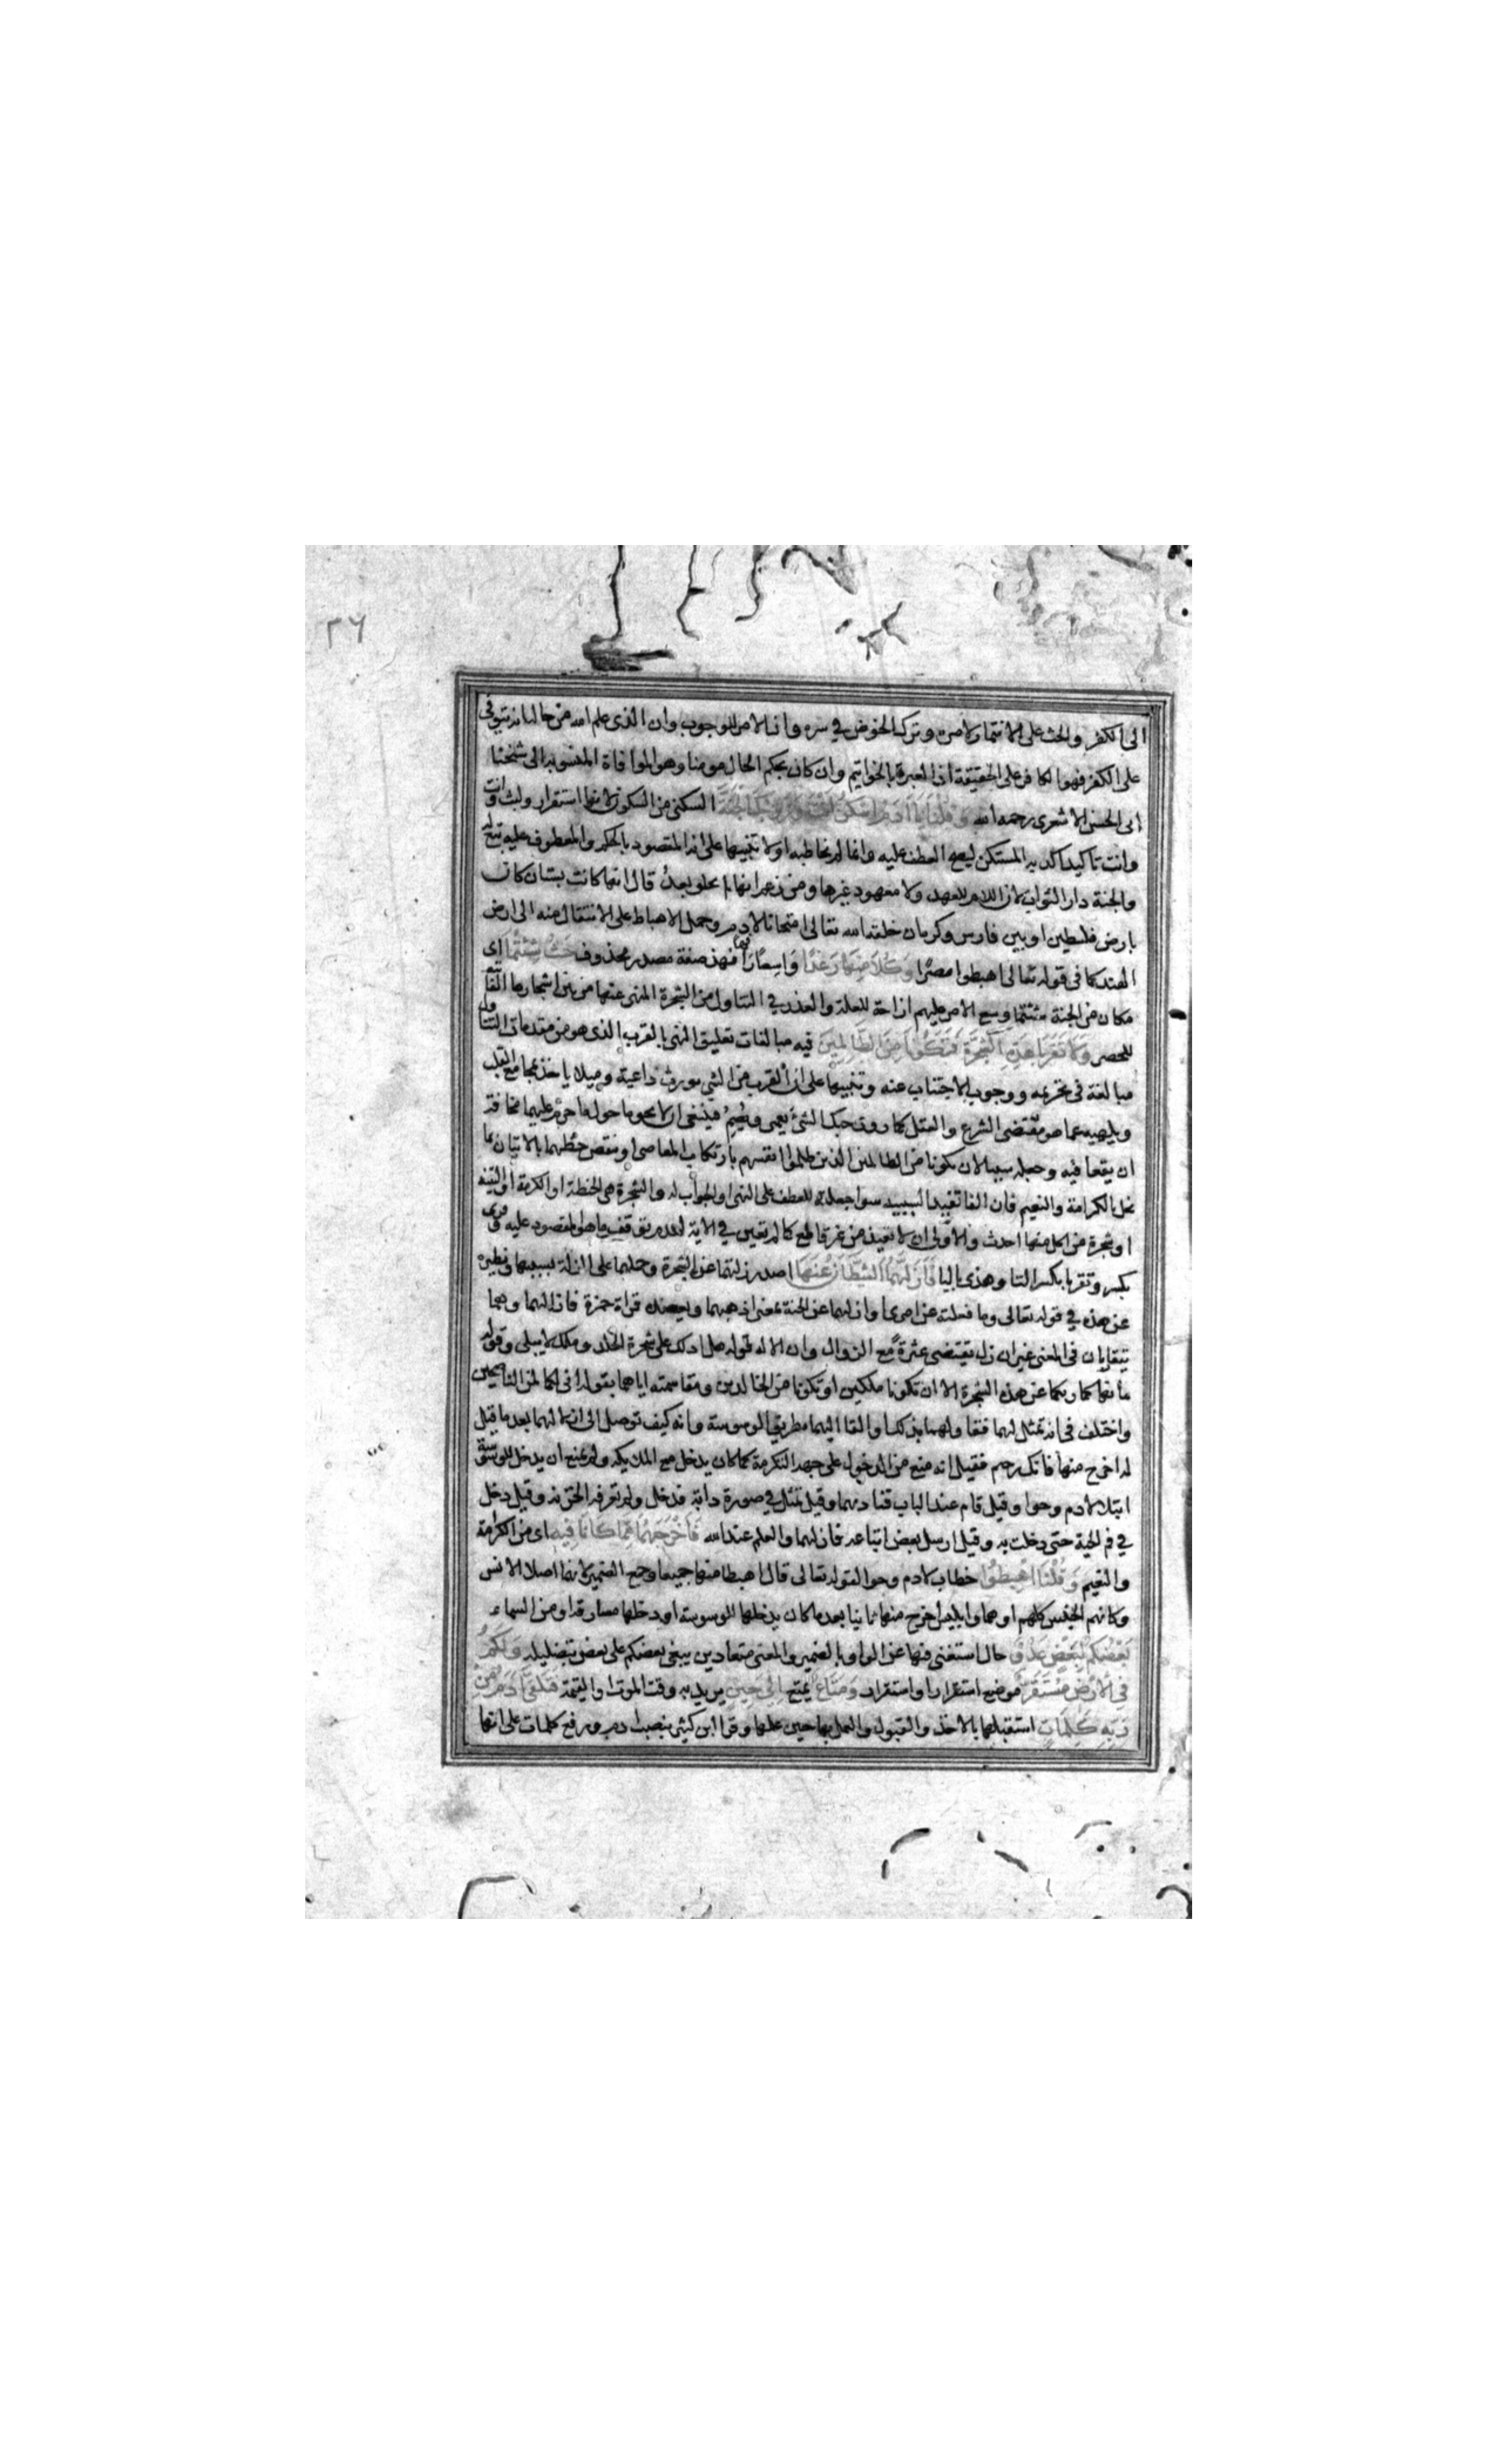 ٢٦
الى الكفر والحث على الائتمار لامره وترك الخوض في سره وان الامر للوجوب وان الذى علم الله من حاله انه يتوفى
على الكفر فهو الكافر على الحقيقة اذ العبرة بالخواتيم وان كان بحكم الحال مومنا وهو الموافاة المنسوبه الى شيخنا
ابى الحسن الاشعرى رحمه الله وَقُلْنَا يَا آدَمُ اسْكُنْ أَنْتَ وَزَوْجُكَ الْجَنَّةَ السكنى من السكون لانها استقرار ولبث وانت
وانت تاكيد اكد به المستكن ليصح العطف عليه وانما لم يخاطبها اولا تنبيها على انه المقصود بالحكم والمعطوف عليه تبع له
والجنة دار الثواب لان اللام للعهد ولا معهود غيرها ومن زعم انها لم تخلق بعدُ قال انها كانت بستان كان
بارض فلسطين او بين فارس وكرمان خلقه الله تعالى امتحانا لادم وحمل الاهباط على الانتقال منه الى ارض
الهند كما فى قوله تعالى اهبطوا مصرًا وَكُلَا مِنْهَا رَغَدًا وَاسِعًا رافهًا صفة مصدر محذوف حَيْثُ شِئْتُمَا اى
مكان من الجنة شئتما وسع الامر عليهم ازاحة للعلة والعذر في التناول من الشجرة المنهى عنها من بين اشجارها الفائتة
للحصر وَلَا تَقْرَبَا هَذِهِ الشَّجَرَةَ فَتَكُونَا مِنَ الظَّالِمِينَ فيه مبالغات تعليق النهى بالقرب الذى هو من مقدمات التناول
مبالغة فى تحريمه ووجوب الاجتناب عنه وتنبيها على ان القرب من الشي يورث داعية وميلا ياخذ بمجامع القلب
ويلهيه عما هو مقتضى الشرع والعقل كما روى حبك الشئ يعمى ويُصِمُّ فينبغى ان لا يحوما حول ما حرم عليهما مخافة
ان يقعا فيه وجعله سببا لان يكونا من الظالمين الذين ظلموا انفسهم بارتكاب المعاصى او بنقص حظهما بالاتيان بما
يخل بالكرامة والنعيم فان الفا تفيد السببيه سوا جعلته للعطف على النهى او الجواب له والشجرة هى الحنطة او الكرمة او التينه
او شجرة من اكل منها احدث والاولى ان لا تعين من غير قاطع كما لم تعين في الاية لعدم توقف ما هو المقصود عليه وقرى
بكسر وتقربا بكسر التا وهذى باليا فَأَزَلَّهُمَا الشَّيْطَانُ عَنْهَا اصدر زلتهما عن الشجرة وحملهما على الزلة بسببها ونظيره
عن هذه في قوله تعالى وما فعلته عن امرى او ازلهما عن الجنة بمعنى اذهبهما ويعضده قراة حمزة فازالهما وهما
يتقاربان فى المعنى غير ان زل يقتضى عثرةً مع الزوال وازلاله قوله هل ادلك على شجرة الخلد وملك لا يبلى وقوله
ما نهاكما ربكما عن هذه الشجرة الا ان تكونا ملكين او تكونا من الخالدين ومقاسمته اياهما بقوله انى لكما لمن الناصحين
واختلف فى انه تمثل لهما فقاولهما بذلك او القاه اليهما بطريق الوسوسة وانه كيف توصل الى ازلالهما بعد ما قيل
له اخرج منها فانك رجيم فقيل انه منع من الدخول على جهة التكرمة كما كان يدخل مع الملايكه ولم يمنع ان يدخل للوسوسة
ابتلا لادم وحوا وقيل قام عند الباب فناداهما وقيل تمثل في صورة دابة فدخل ولم تعرفه الخزنه وقيل دخل
في فم الحية حتى دخلت به وقيل ارسل بعض اتباعه فازلهما والعلم عند الله فَأَخْرَجَهُمَا مِمَّا كَانَا فِيهِ اى من الكرامة
والنعيم وَقُلْنَا اهْبِطُوا خطاب لادم وحوا لقوله تعالى قال اهبطا منها جميعا وجمع الضمير لانهما اصلا الانس
وكانهم الجنس كلهم او هما وابليس اخرج منها ثانيا بعد ما كان يدخلها للوسوسة او دخلها مسارقة او من السماء
بَعْضُكُمْ لِبَعْضٍ عَدُوٌّ حال استغنى فيها عن الواو بالضمير والمعنى متعادين يبغى بعضكم على بعض بتضليله وَلَكُمْ
فِي الْأَرْضِ مُسْتَقَرٌّ موضع استقرار او استقرار وَمَتَاعٌ تمتع إِلَى حِينٍ يريد به وقت الموت او القيمة فَتَلَقَّى آدَمُ مِنْ
رَبِّهِ كَلِمَاتٍ استقبلها بالاخذ والقبول والعمل بها حين علمها وقرا ابن كثير بنصب ادم ورفع كلمات على انها